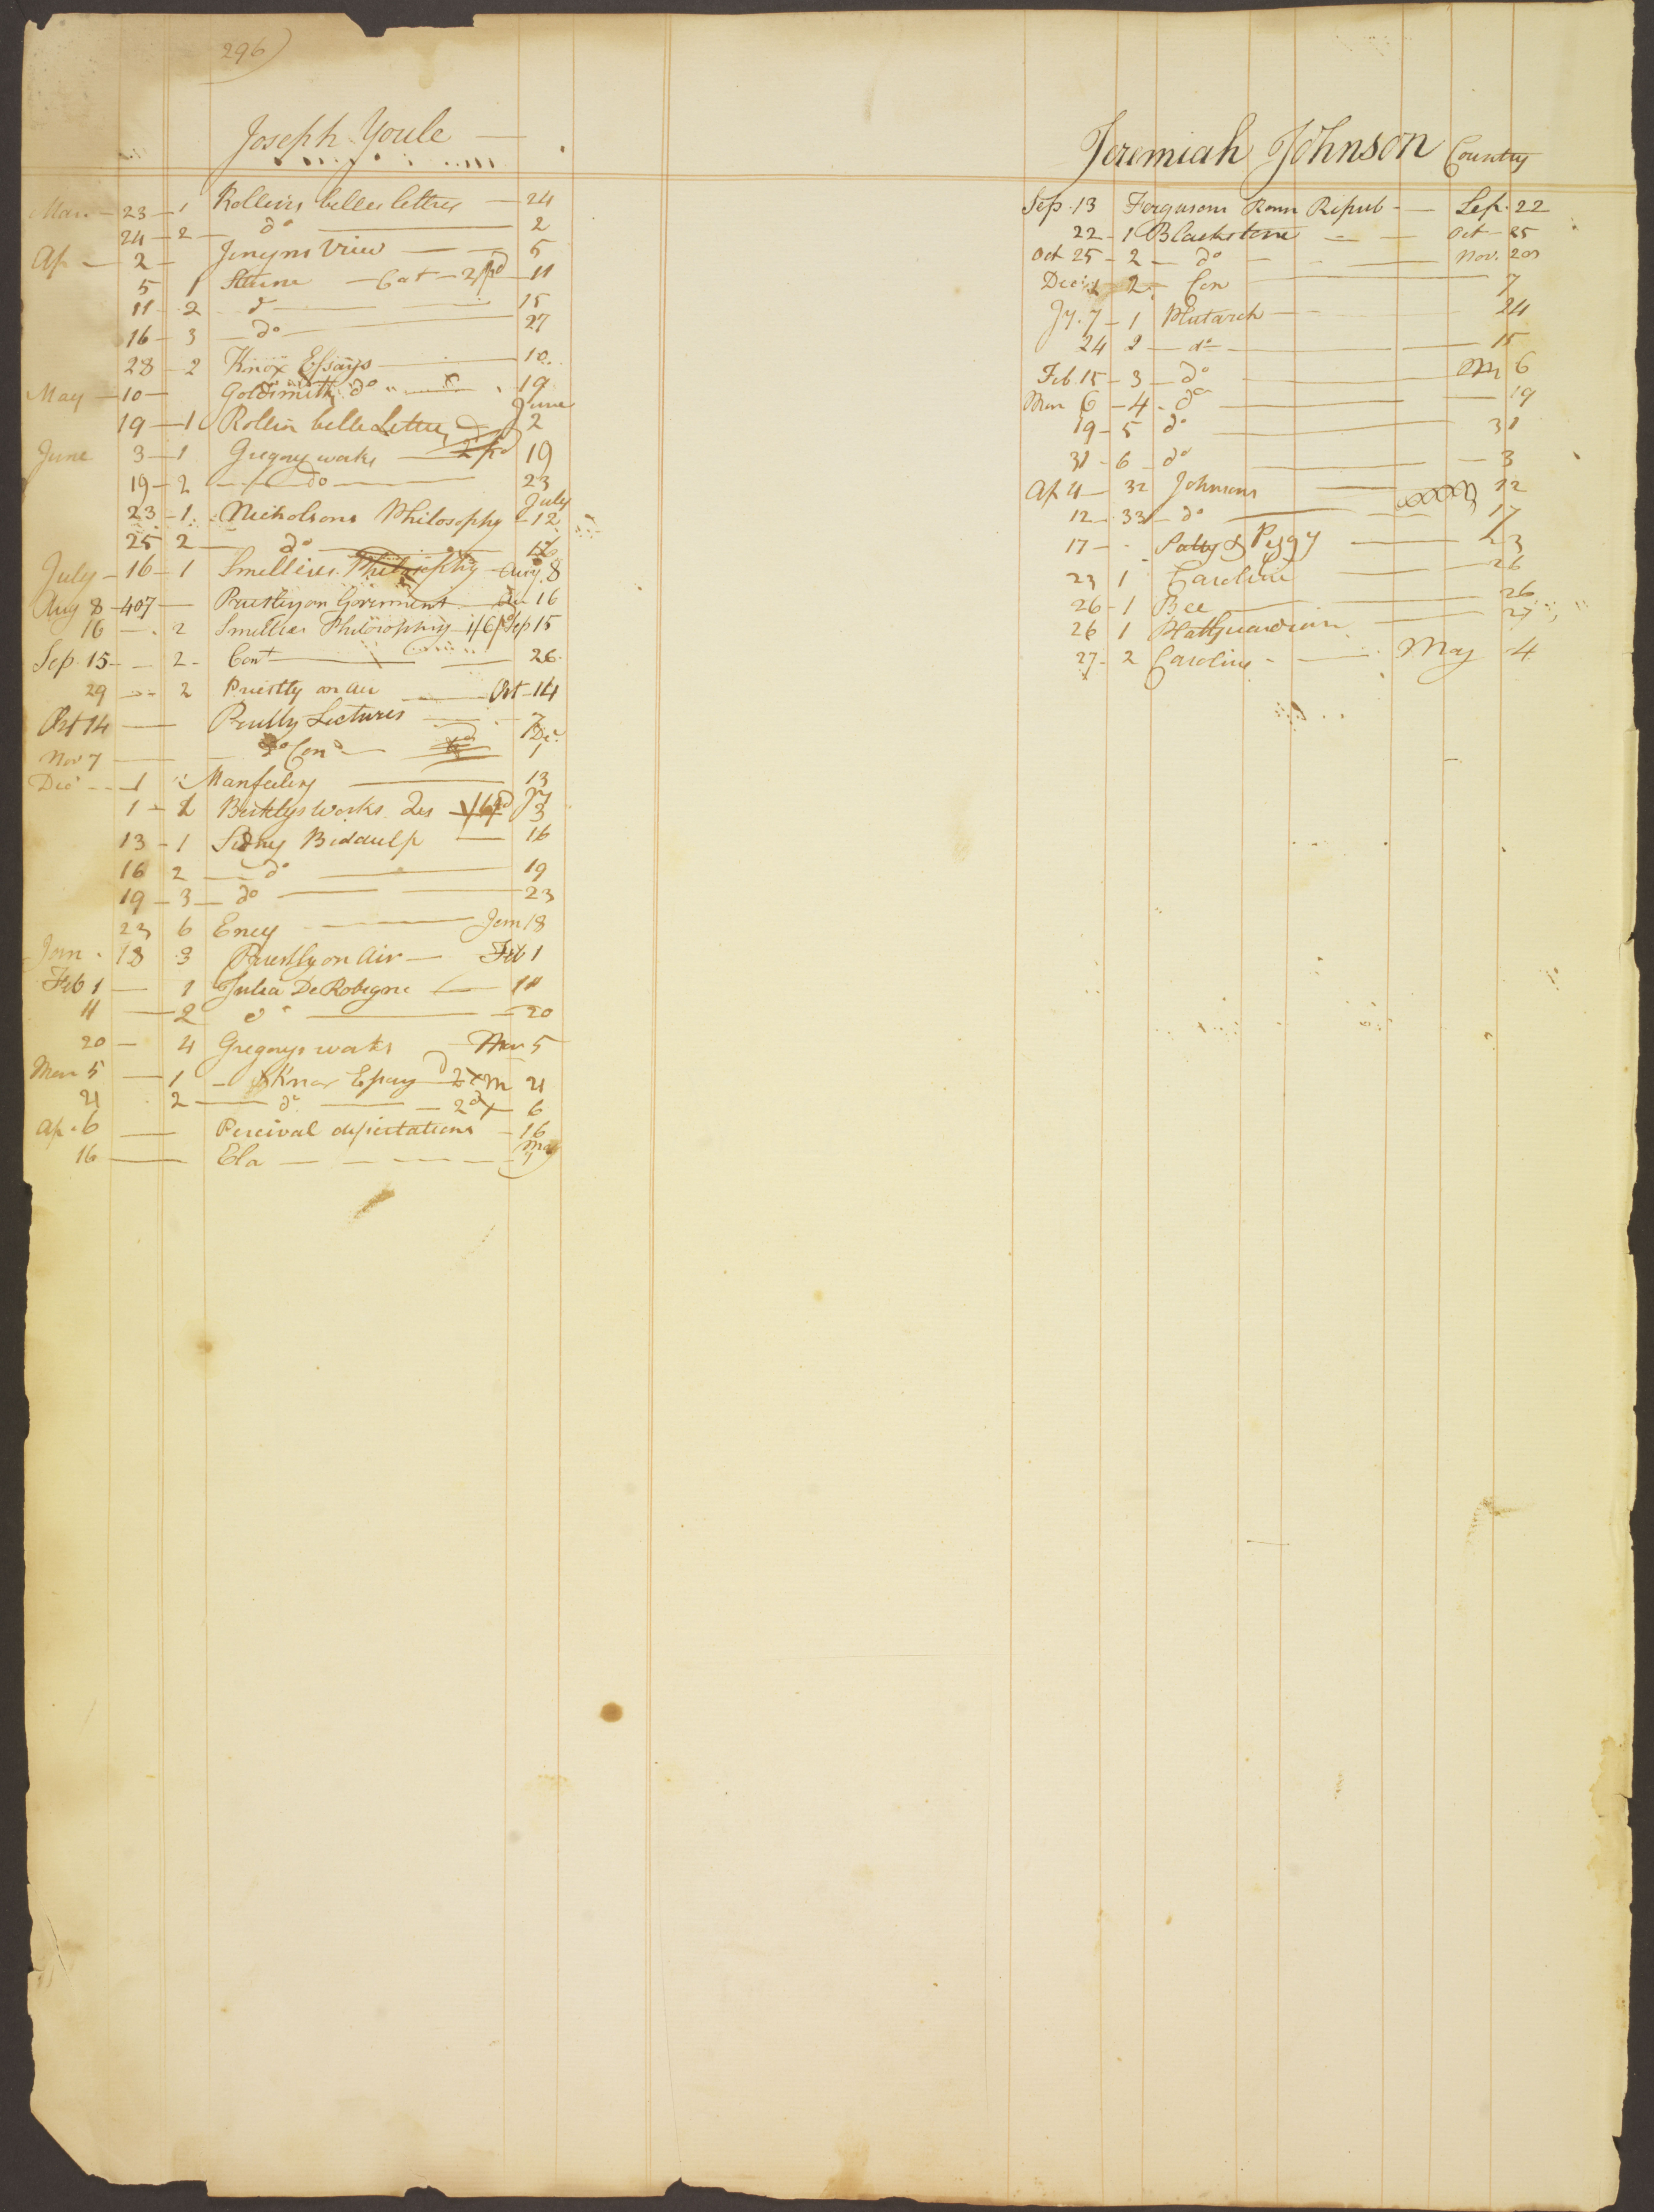 296)
Joseph Youle
Mar. 23 1 Rollins belles lettres 24
24 2 do 2
Ap 2 Jenyns View 5
5 1 Sterne 2/ pd 11
11 2 do 15
16 3 do 27
28 2 Knox Essays 10
May 10 Goldsmith do 19
19 1 Rollin belle Lettres June 2
June 3 1 Gregory works 19
19 2 do 23
23 1 Nicholsons Philosophy July 12
25 2 do
July 16 1 Smellies Philosophy Aug 8
Aug 8 407 Priestly on Goverment 16
16 2 Smellies Philosophy Sep 15
Sep 15 2 Cont 26
29 2 Priestly on air Oct 14
Oct 14 Priestly Lectures 7
Nov 7 do Con Dec 1
Dec 1 Manfeeling 13
1 2 Berklys works 3
13 1 Sidny Biddulp 16
16 2 do 19
19 3 do 23
23 6 Ency Jan 18
Jan 18 3 Priestly on Air Feb 1
Feb 1 1 Julia De Robigne 11
11 2 do 20
20 4 Gregorys works Mar 5
Mar 5 1 Knox Essay 21
21 2 do 6
Ap 6 Percival disertations 16
16 Ela May
Jeremiah Johnson Country
Sep 13 Fergusons Rom Repub Sep. 22
22 1 Blackstone Oct 25
Oct 25 2 do Nov. 20
Dec 2 Con 7
Jy. 7 1 Plutarch 24
24 2 do 15
Feb 15 3 do M 6
Mar 6 4 do 19
19 5 do 31
31 6 do 3
Ap 4 32 Johnsons 12
12 33 do 17
17 Patty & Pegy 23
23 1 Caroline 26
26 1 Bee 26
26 1 27
27 2 Caroline May 4